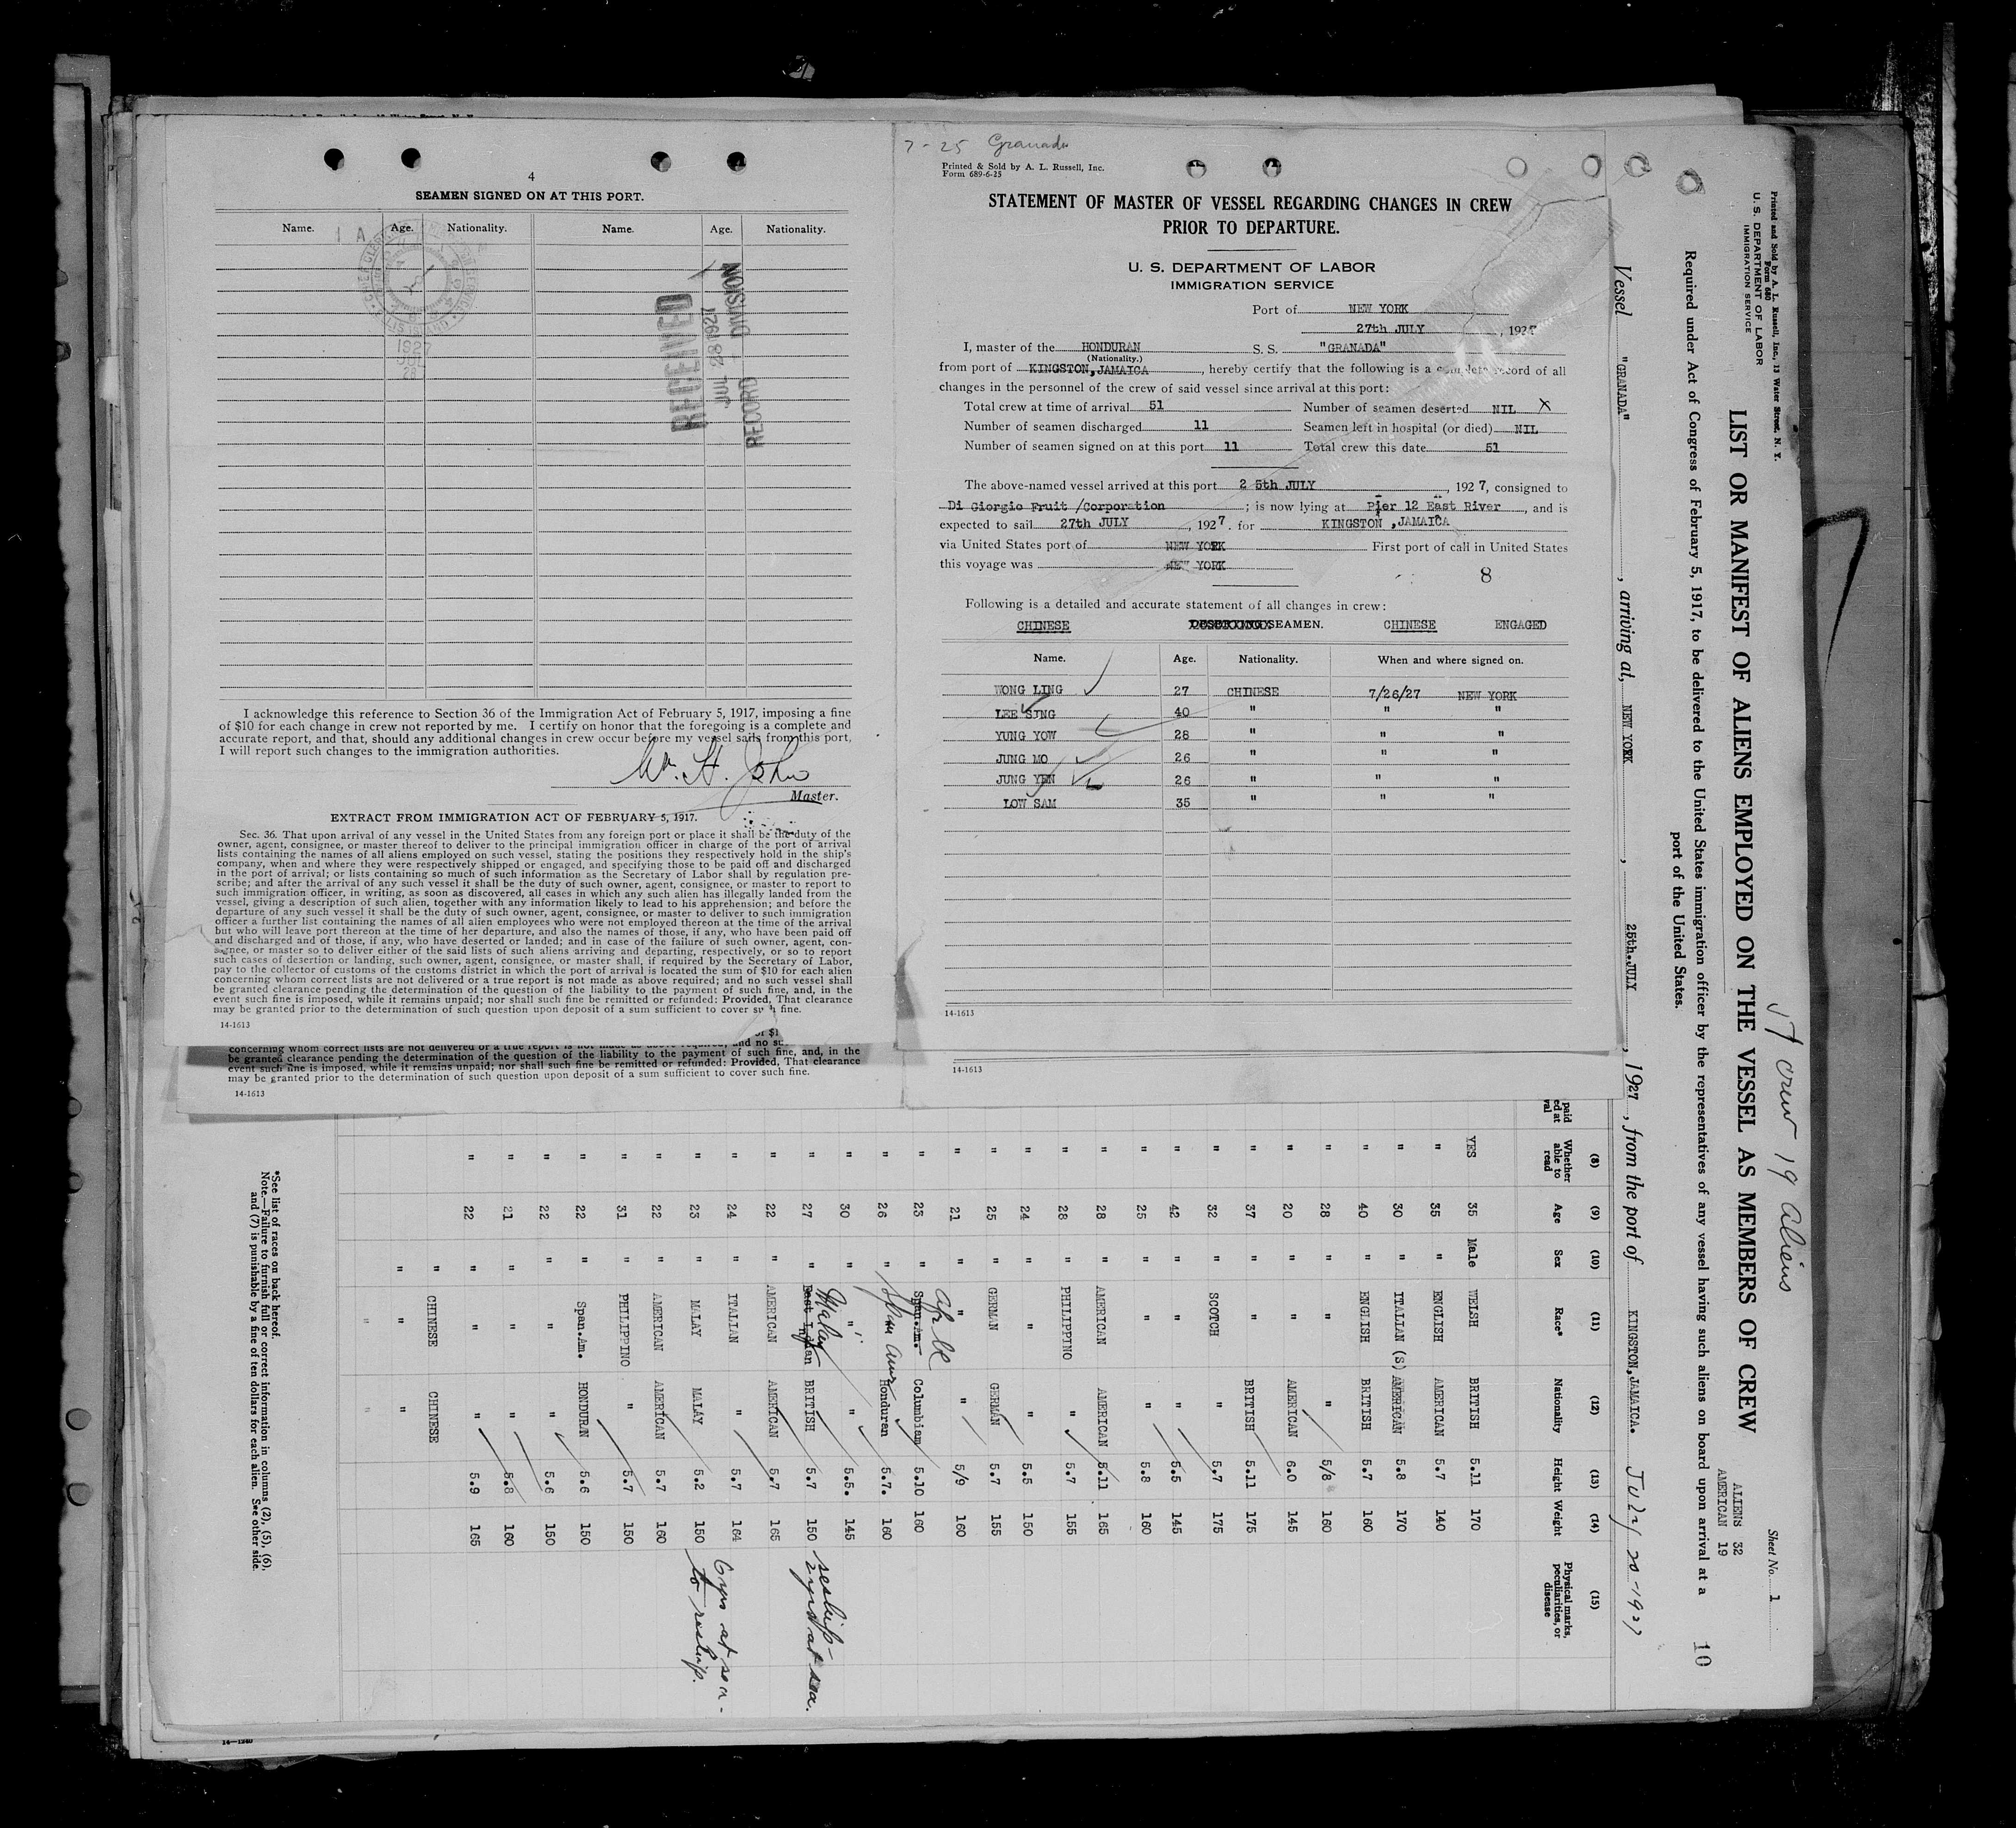 4
SEAMEN SIGNED ON AT THIS PORT.
Name. Age. Nationality. Name. Age. Nationality.
1927
JUL
28
RECEIVED
JUL 28 1927
RECORD DIVISION
I acknowledge this reference to Section 36 of the Immigration Act of February 5, 1917, imposing a fine
of $10 for each change in crew not reported by me. I certify on honor that the foregoing is a complete and
accurate report, and that, should any additional changes in crew occur before my vessel sails from this port,
I will report such changes to the immigration authorities.
Wm. H. John
Master.
EXTRACT FROM IMMIGRATION ACT OF FEBRUARY 5, 1917.
Sec. 36. That upon arrival of any vessel in the United States from any foreign port or place it shall be the duty of the
owner, agent, consignee, or master thereof to deliver to the principal immigration officer in charge of the port of arrival
lists containing the names of all aliens employed on such vessel, stating the positions they respectively hold in the ship's
company, when and where they were respectively shipped or engaged, and specifying those to be paid off and discharged
in the port of arrival; or lists containing so much of such information as the Secretary of Labor shall by regulation pre-
scribe; and after the arrival of any such vessel it shall be the duty of such owner, agent, consignee, or master to report to
such immigration officer, in writing, as soon as discovered, all cases in which any such alien has illegally landed from the
vessel, giving a description of such alien, together with any information likely to lead to his apprehension; and before the
departure of any such vessel it shall be the duty of such owner, agent, consignee, or master to deliver to such immigration
officer a further list containing the names of all alien employees who were not employed thereon at the time of the arrival
but who will leave port thereon at the time of her departure, and also the names of those, if any, who have been paid off
and discharged and of those, if any, who have deserted or landed; and in case of the failure of such owner, agent, con-
signee, or master so to deliver either of the said lists of such aliens arriving and departing, respectively, or so to report
such cases of desertion or landing, such owner, agent, consignee, or master shall, if required by the Secretary of Labor,
pay to the collector of customs of the customs district in which the port of arrival is located the sum of $10 for each alien
concerning whom correct lists are not delivered or a true report is not made as above required; and no such vessel shall
be granted clearance pending the determination of the question of the liability to the payment of such fine, and, in the
event such fine is imposed, while it remains unpaid; nor shall such fine be remitted or refunded: Provided, That clearance
may be granted prior to the determination of such question upon deposit of a sum sufficient to cover such fine.
14-1613
concerning whom correct lists are not delivered or a true report is not made as above required; and no su
be granted clearance pending the determination of the question of the liability to the payment of such fine, and, in the
event such fine is imposed, while it remains unpaid; nor shall such fine be remitted or refunded: Provided, That clearance
may be granted prior to the determination of such question upon deposit of a sum sufficient to cover such fine.
14-1613
7-25 Granada
Printed & Sold by A. L. Russell, Inc.
Form 689-6-25
STATEMENT OF MASTER OF VESSEL REGARDING CHANGES IN CREW
PRIOR TO DEPARTURE.
U. S. DEPARTMENT OF LABOR
IMMIGRATION SERVICE
Port of NEW YORK
27th JULY, 1927
I, master of the HONDURAN S. S. "GRANADA"
(Nationality.)
from port of KINGSTON, JAMAICA, hereby certify that the following is a complete record of all
changes in the personnel of the crew of said vessel since arrival at this port:
Total crew at time of arrival 51 Number of seamen deserted NIL X
Number of seamen discharged 11 Seamen left in hospital (or died) NIL
Number of seamen signed on at this port 11 Total crew this date 51
The above-named vessel arrived at this port 2 5th JULY, 1927, consigned to
Di Giorgio Fruit /Corporation; is now lying at Pier 12 East River, and is
expected to sail 27th JULY, 1927. for KINGSTON ,JAMAICA
via United States port of NEW YORK First port of call in United States
this voyage was NEW YORK
8
Following is a detailed and accurate statement of all changes in crew:
CHINESE SEAMEN. CHINESE ENGAGED
Name. Age. Nationality. When and where signed on.
WONG LING 27 CHINESE 7/26/27 NEW YORK
LEE SING 40 " " "
YUNG YOW 28 " " "
JUNG MO 26 " " "
JUNG YEN 26 " " "
LOW SAM 35 " " "
14-1613
14-1613
Printed and Sold by A. L. Russell, Inc., 13 Water Street, N. Y.
Form 680
U. S. DEPARTMENT OF LABOR
IMMIGRATION SERVICE
Sheet No. 1
crew 19 aliens
LIST OR MANIFEST OF ALIENS EMPLOYED ON THE VESSEL AS MEMBERS OF CREW
ALIENS 32
AMERICAN 19
10
Required under Act of Congress of February 5, 1917, to be delivered to the United States immigration officer by the representatives of any vessel having such aliens on board upon arrival at a
port of the United States.
Vessel "GRANADA", arriving at, NEW YORK, 25th.JULY, 1927, from the port of KINGSTON,JAMAICA. July 20-1927
(8) (9) (10) (11) (12) (13) (14) (15)
Whether able to read Age Sex Race* Nationality Height Weight Physical marks, peculiarities, or disease
YES 35 Male WELSH BRITISH 5.11 170
" 35 " ENGLISH AMERICAN 5.7 140
" 30 " ITALIAN (S) AMERICAN 5.8 170
" 40 " ENGLISH BRITISH 5.7 160
" 28 " " " 5/8 160
" 20 " " AMERICAN 6.0 145
" 37 " " BRITISH 5.11 175
" 32 " SCOTCH " 5.7 175
" 42 " " " 5.5 145
" 25 " " " 5.8 160
" 28 " AMERICAN AMERICAN 5.11 165
" 28 " PHILIPPINO " 5.7 155
" 24 " " " 5.5 150
" 25 " GERMAN GERMAN 5.7 155
" 21 " " " 5/9 160
" 23 " Span.Am. Afr blk Columbian 5.10 160
" 26 " " Span Amer Honduran 5.7. 160
" 30 " " " 5.5. 145
" 27 " East Indian Malay BRITISH 5.7 150 reship-
" 22 " AMERICAN AMERICAN 5.7 165
" 24 " ITALIAN " 5.7 164 6 yrs at sea-
" 23 " MALAY MALAY 5.2 150 to reship.
" 22 " AMERICAN AMERICAN 5.7 160
" 31 " PHILIPPINO " 5.7 150
" 22 " Span.Am. HONDURAN 5.6 150
" 22 " " " 5.6 150
" 21 " " " 5.8 160
" 22 " " " 5.9 165
" CHINESE CHINESE
" " "
" "
*See list of races on back hereof.
Note.—Failure to furnish full or correct information in columns (2), (5), (6),
and (7) is punishable by a fine of ten dollars for each alien. See other side.
14-1240